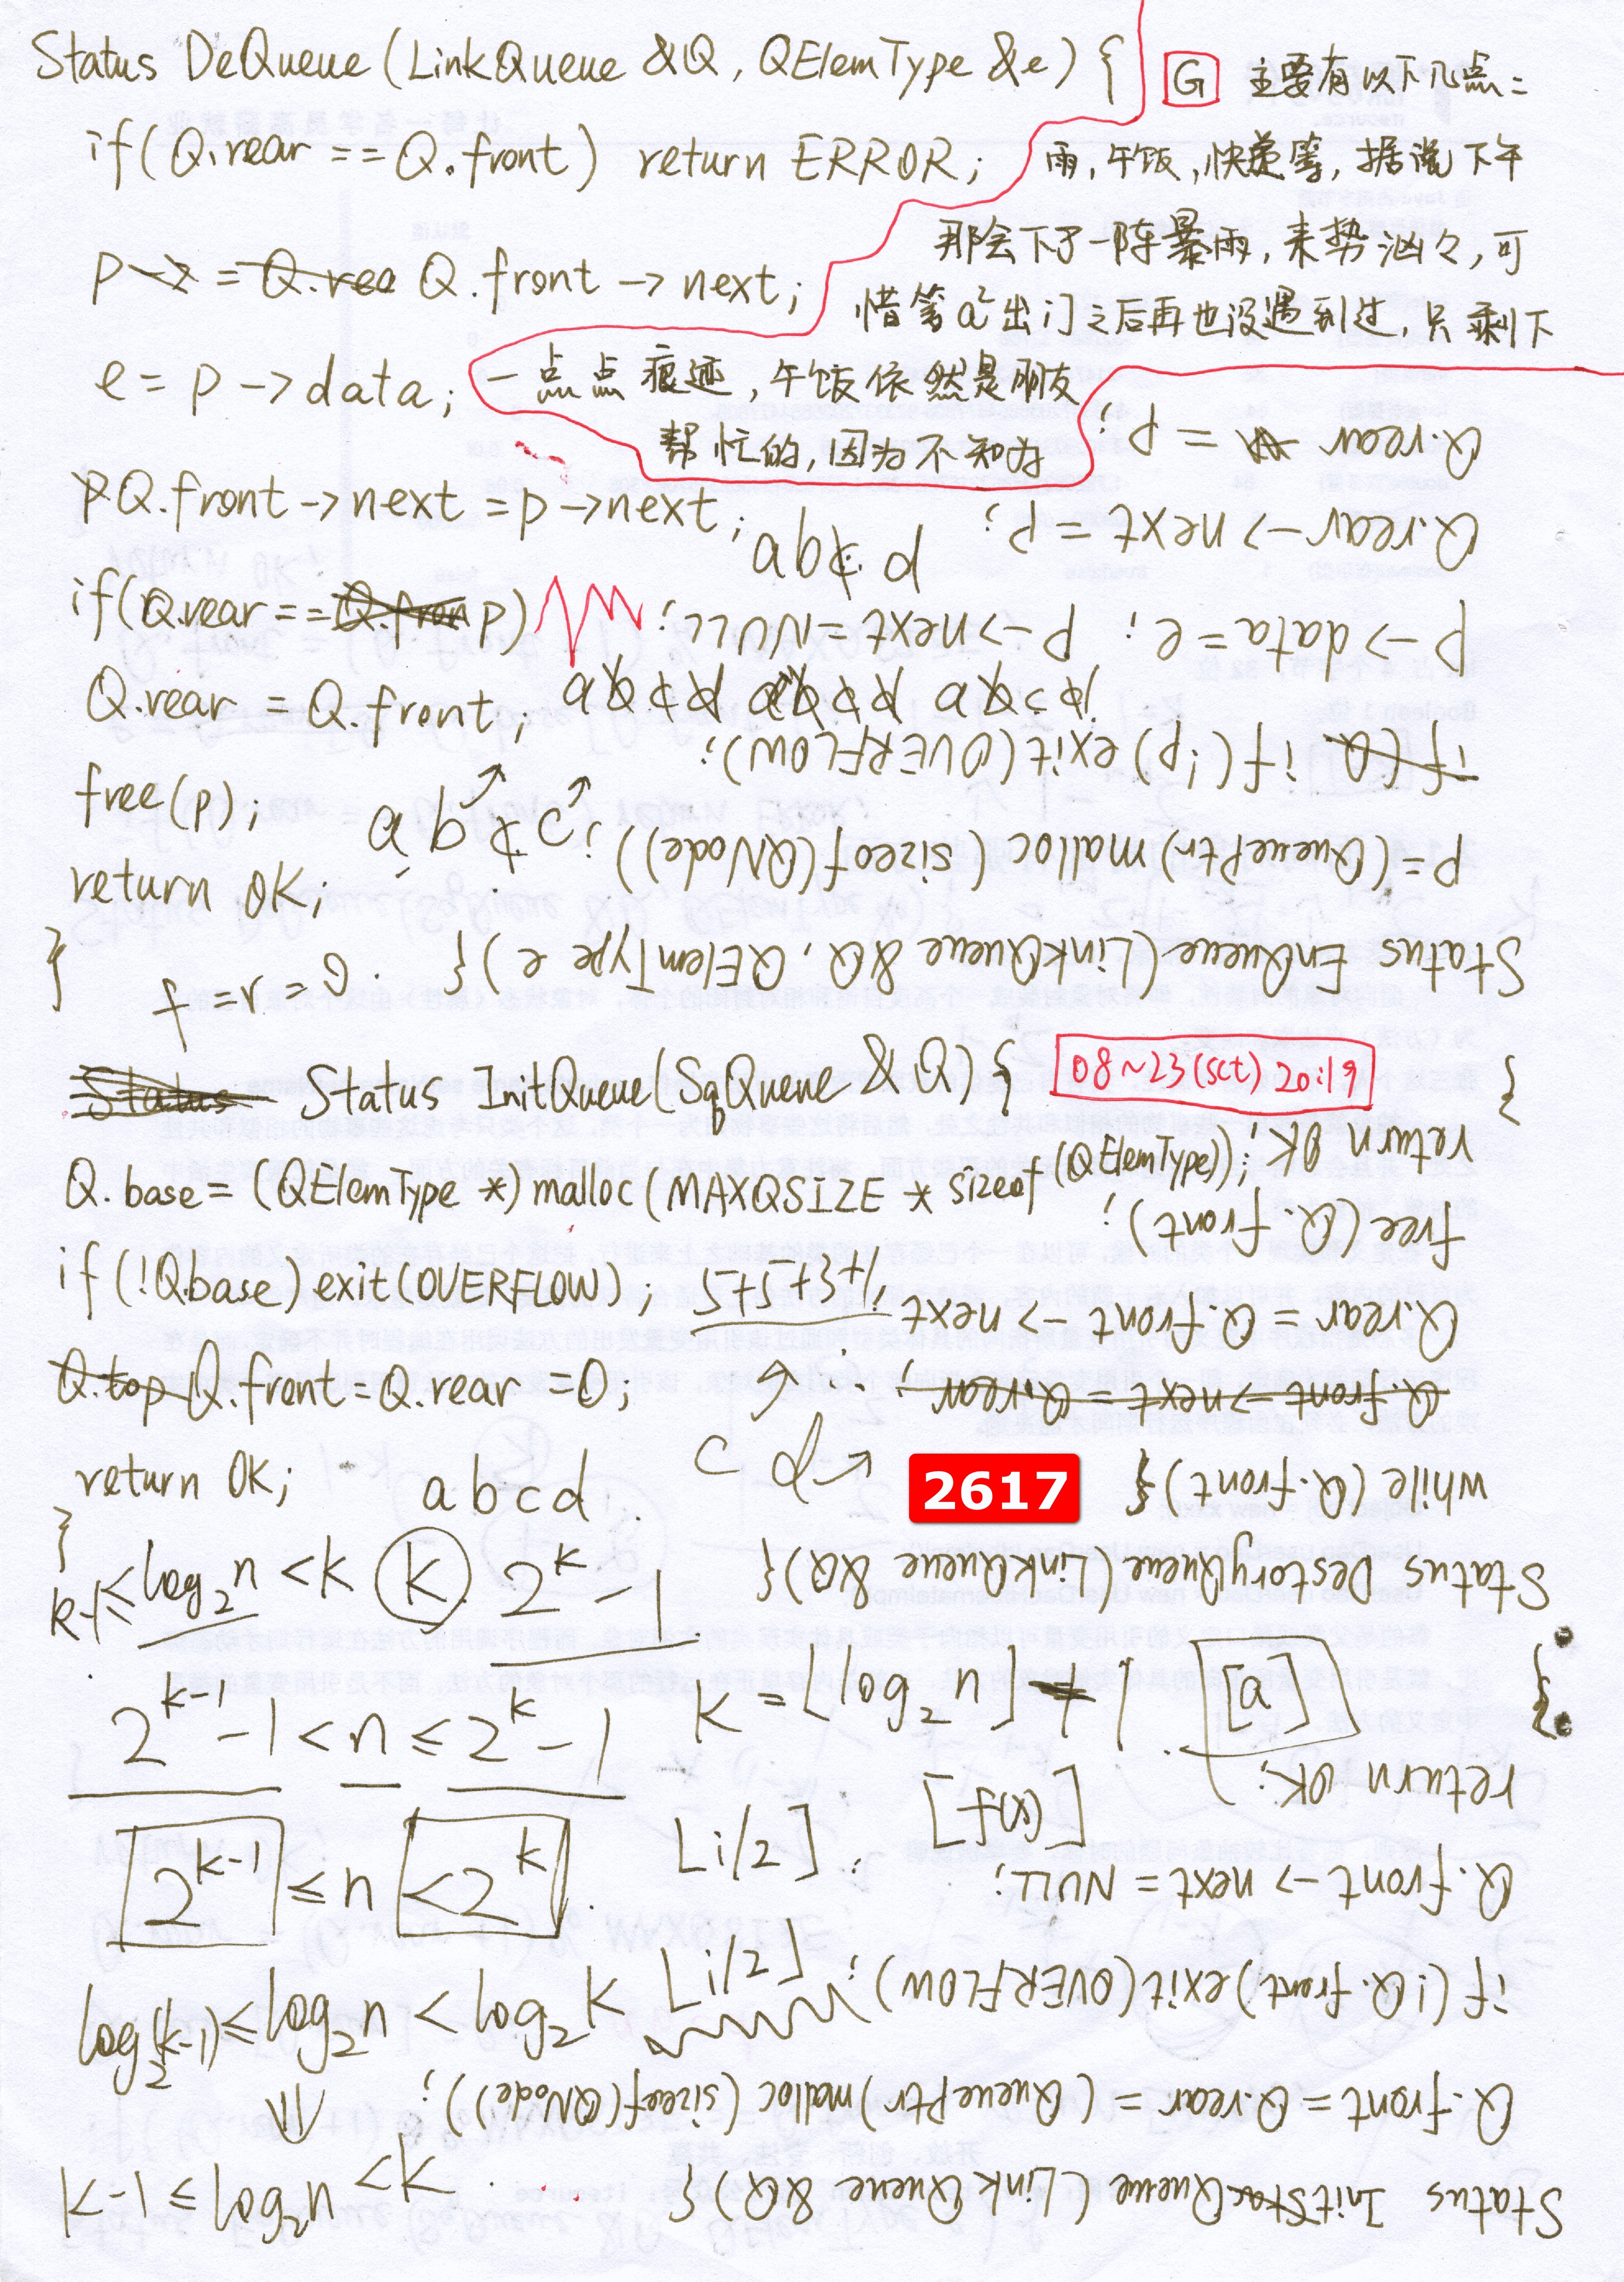 Status DeQueue(LinkQueue &Q, QElemType &e) {
if(Q.rear == Q.front) return ERROR;
p = Q.front -> next;
e = p -> data;
Q.front -> next = p -> next;
if(Q.rear == p)
Q.rear = Q.front;
free(p);
return OK;
}
G 主要有以下几点:
雨,午饭,快递等,据说下午
那会下了一阵暴雨,来势汹々,可
惜等a²出门之后再也没遇到过,只剩下
一点点痕迹,午饭依然是朋友
帮忙的,因为不知为
ab¢ d
a b c d a b c d a b c d
a b ¢ c
f = r = 0.
Status InitQueue(SqQueue &Q) {
Q.base = (QElemType *) malloc(MAXQSIZE * sizeof(QElemType));
if (!Q.base) exit(OVERFLOW);
Q.top Q.front = Q.rear = 0;
return OK;
}
08~23(sct) 20:19
5+5+3+1
a b c d.
c d
2617
k-1 ≤ log₂n < k k 2^k - 1
2^(k-1) - 1 < n ≤ 2^k - 1
k = ⌊log₂ n⌋ + 1 [a]
2^(k-1) ≤ n < 2^k.
⌊i/2⌋ [f(x)]
log₂(k-1) ≤ log₂n < log₂k ⌊i/2⌋
⇓
k-1 ≤ log₂n < k
Status InitStacQueue (LinkQueue &Q) {
Q.front = Q.rear = (QueuePtr) malloc (sizeof(QNode));
if (!Q.front) exit (OVERFLOW);
Q.front -> next = NULL;
return OK;
}
Status DestoryQueue (LinkQueue &Q) {
while (Q.front) {
Q.front -> next = Q.rear;
Q.rear = Q.front -> next;
free (Q.front);
return OK;
}
Status EnQueue (LinkQueue &Q, QElemType e) {
p = (QueuePtr) malloc (sizeof(QNode));
if (Q if (!p) exit (OVERFLOW);
p -> data = e; p -> next = NULL;
Q.rear -> next = p;
Q.rear = p;